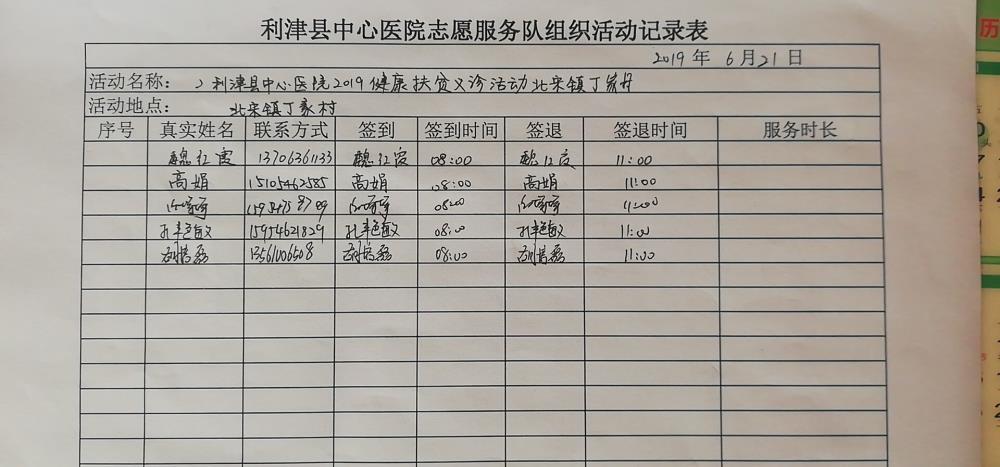 利津县中心医院志愿服务队组织活动记录表
2019 年 6 月 21 日
活动名称： 利津县中心医院2019健康扶贫义诊活动北宋镇丁家村
活动地点： 北宋镇丁家村
序号 真实姓名 联系方式 签到 签到时间 签退 签退时间 服务时长
魏红霞 13706361133 魏红霞 08:00 魏红霞 11:00
高娟 15105462585 高娟 08:00 高娟 11:00
08:00 11:00
孔艳敏 15954621829 孔艳敏 08:00 孔艳敏 11:00
13561006508 08:00 11:00
历